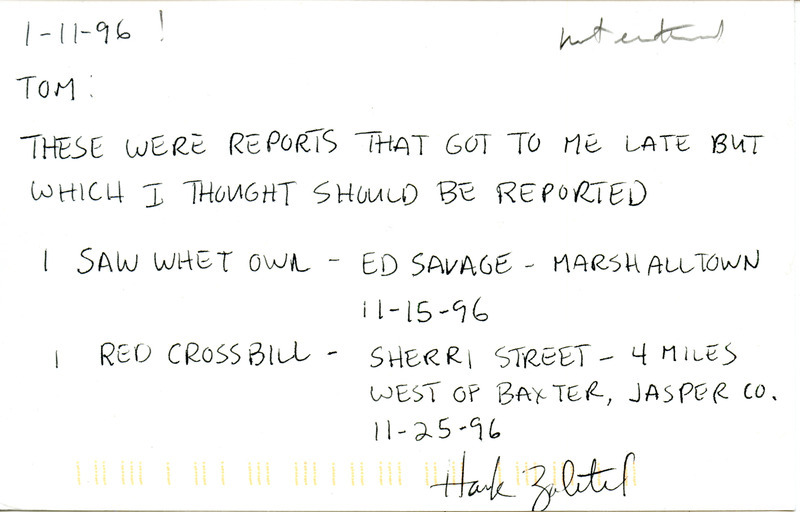 1-11-96 !
not entered
TOM:
THESE WERE REPORTS THAT GOT TO ME LATE BUT
WHICH I THOUGHT SHOULD BE REPORTED
1 SAW WHET OWL - ED SAVAGE - MARSHALLTOWN
11-15-96
1 RED CROSSBILL - SHERRI STREET - 4 MILES
WEST OF BAXTER, JASPER CO.
11-25-96
Hank Zaletel